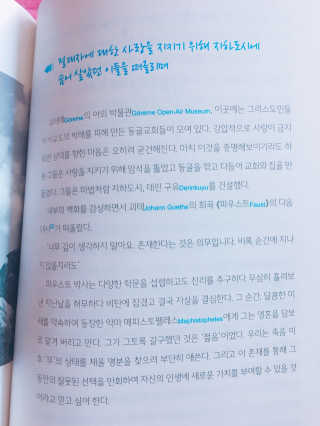 절대자에 대한 사랑을 지키기 위해 지하도시에
숨어 살았던 이들을 떠올리며
괴레메Göreme의 야외 박물관Göreme Open-Air Museum, 이곳에는 그리스도인들
이 종교적 박해를 피해 만든 동굴교회들이 모여 있다. 강압적으로 사랑이 금지
된 상태를 향한 마음은 오히려 굳건해진다. 마치 이것을 증명해 보이기라도 하
듯 그들은 사랑을 지키기 위해 암석을 뚫었고 동굴을 깎고 다듬어 교회와 집을 만
들었다. 그들은 마법처럼 지하도시, 데린 구유Derinkuyu를 건설했다.
내부의 벽화를 감상하면서 괴테Johann Goethe의 희곡 《파우스트Faust》의 다음
대사 떠올랐다.
'너무 깊이 생각하지 말아요. 존재한다는 것은 의무입니다. 비록 순간에 지나
지 않을지라도'
파우스트 박사는 다양한 학문을 섭렵하고도 진리를 추구하다 무심히 흘려보
낸 지난날을 허무하다 비탄에 잠겼고 결국 자살을 결심한다. 그 순간, 달콤한 미
래를 약속하며 등장한 악마 메피스토펠레스Mephistopheles에게 그는 영혼을 담보
로 맡겨 버리고 만다. 그가 그토록 갈구했던 것은 '젊음'이었다. 우리는 죽음 이
후 '무'의 상태를 채울 명분을 찾으려 부단히 애쓴다. 그리고 이 존재를 통해 그
동안의 잘못된 선택을 만회하여 자신의 인생에 새로운 가치를 부여할 수 있을 것
이라고 믿고 싶어 한다.